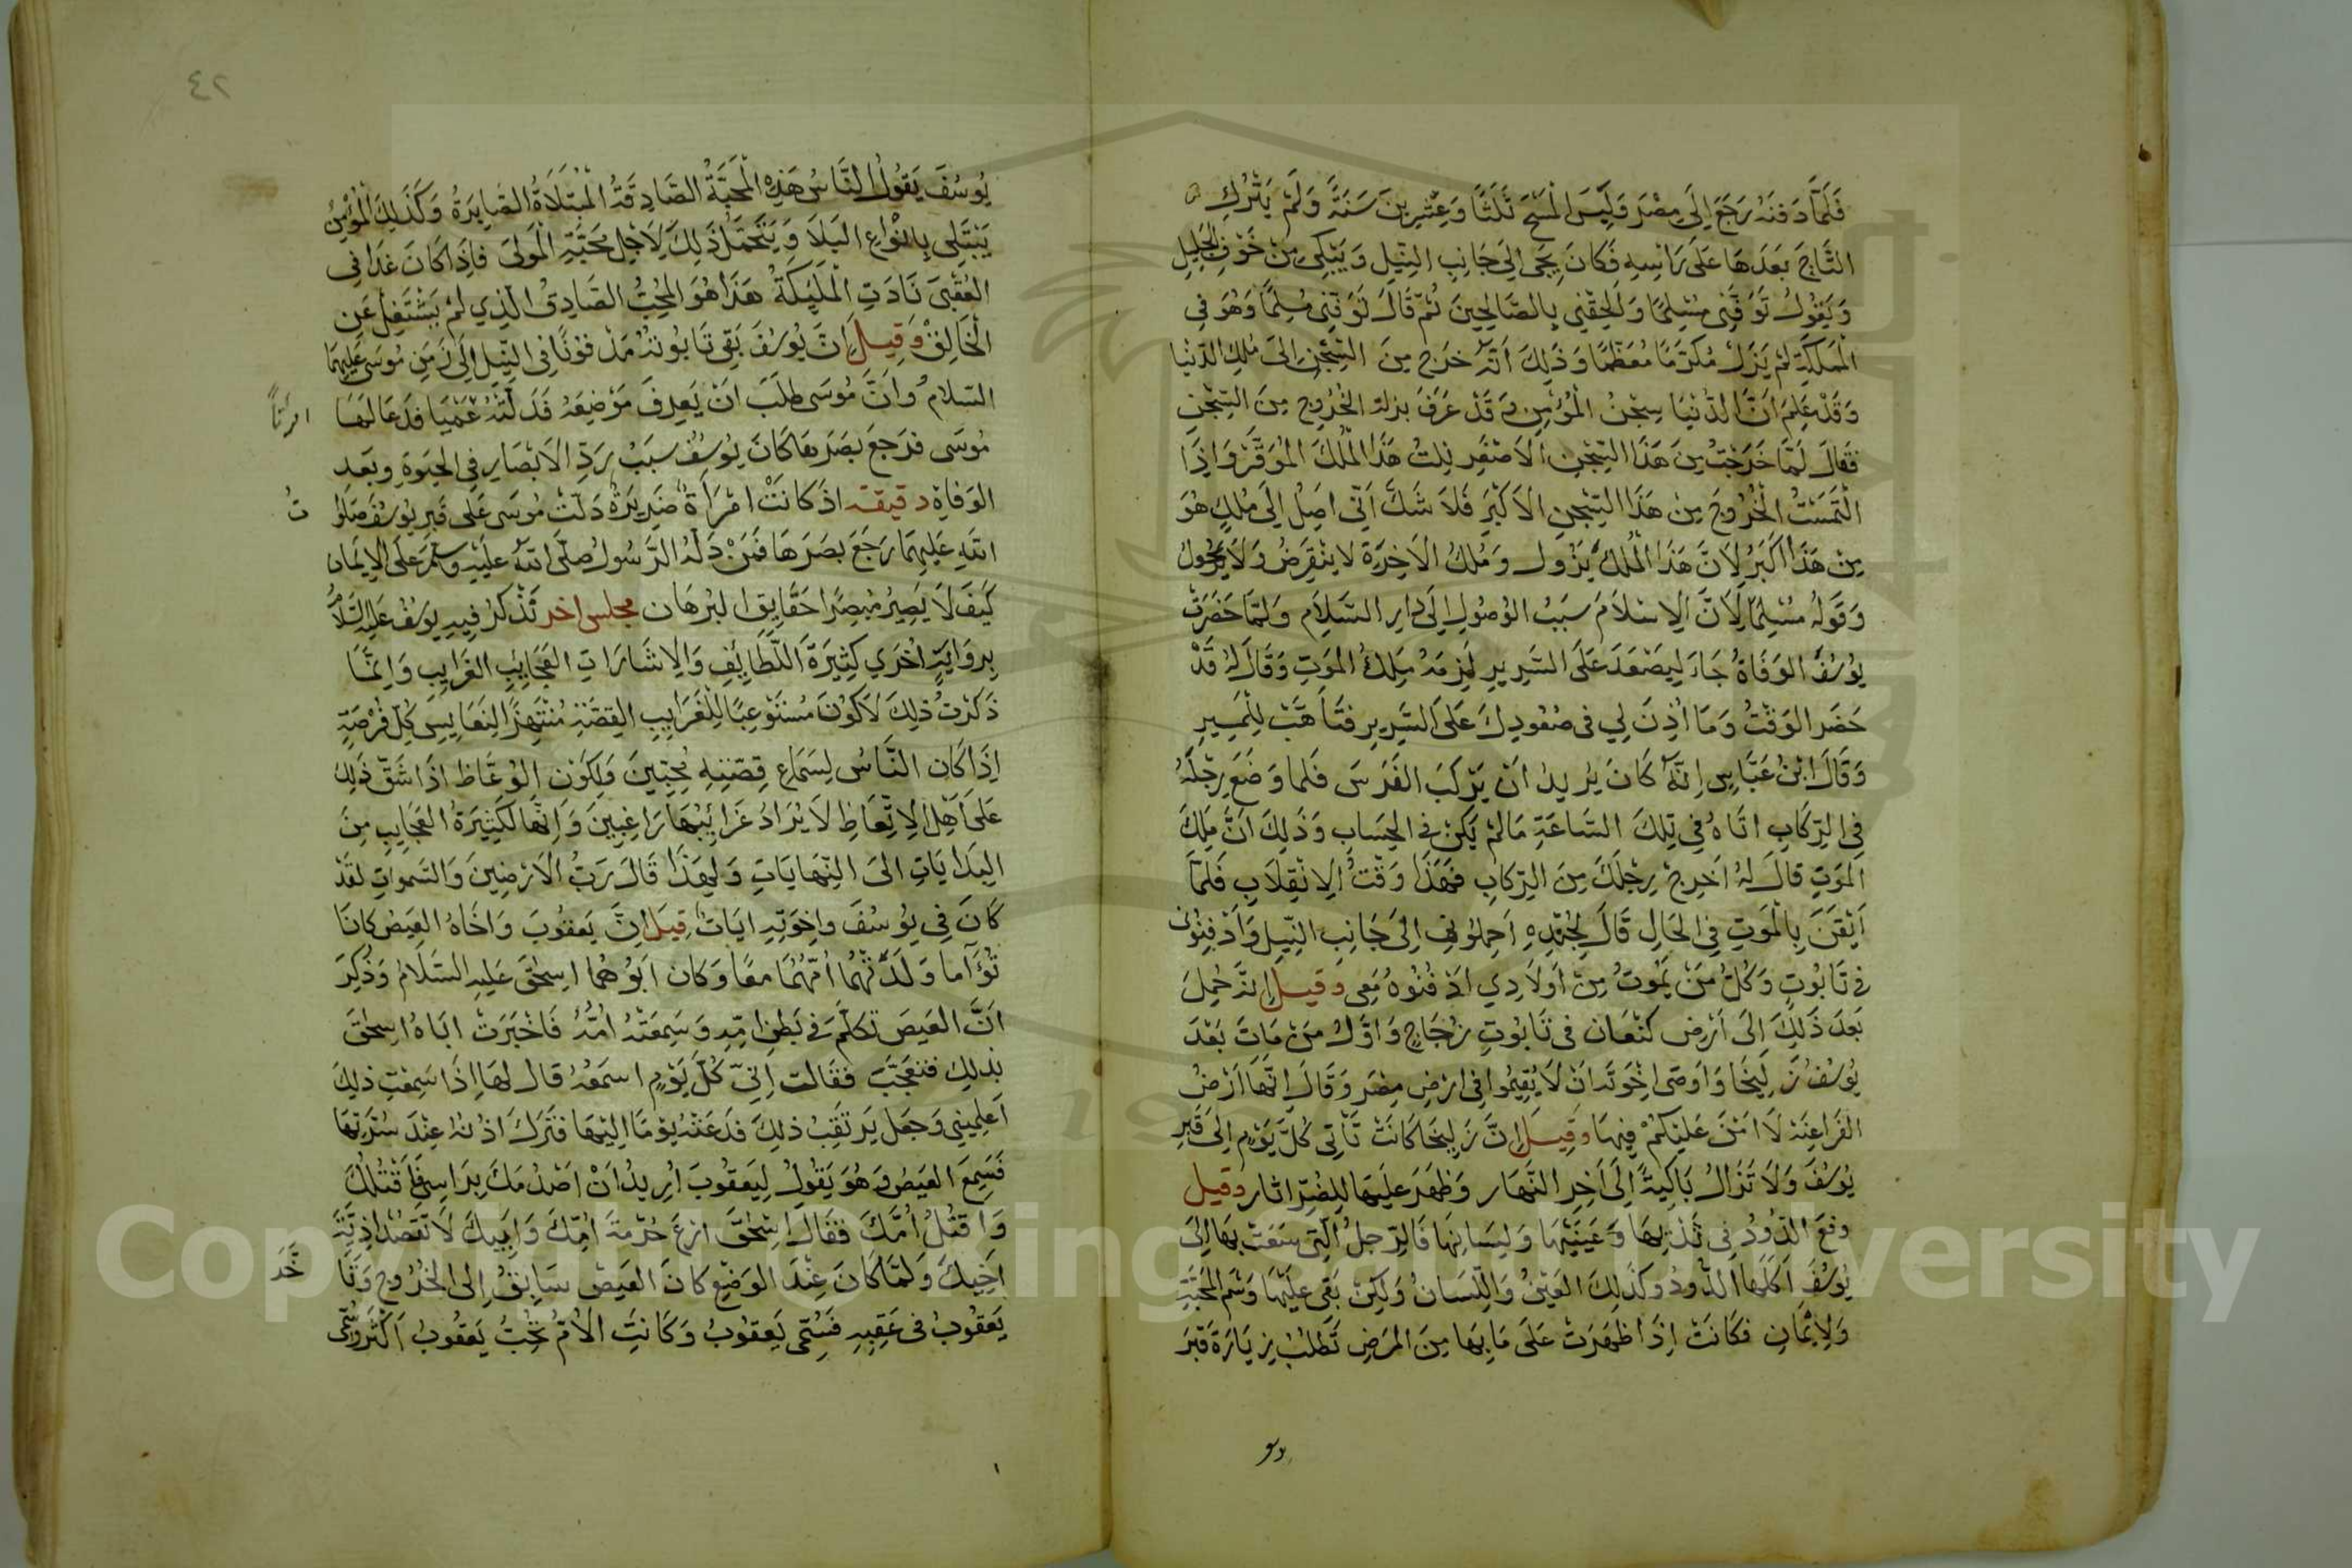 فَلَمَّا دَفَنَهُ رَجَعَ إِلَى مِصْرَ وَلَبِسَ الْمَسْحَ ثَلَثًا وَعِشْرِينَ سَنَةً وَلَمْ يَتْرُكِ
التَّاجَ بَعْدَهَا عَلَى رَأْسِهِ فَكَانَ يَجِئُ إِلَى جَانِبِ النِّيلِ وَيَبْكِي مِنْ خَوْفِ الْجَلِيلِ
وَيَقُولُ تَوَفَّنِي مُسْلِمًا وَأَلْحِقْنِي بِالصَّالِحِينَ ثُمَّ قَالَ تَوَفَّنِي مُسْلِمًا وَهُوَ فِي
الْمَمْلَكَةِ لَمْ يَزَلْ مُكَرَّمًا مُعَظَّمًا وَذَلِكَ أَنَّهُ خَرَجَ مِنَ السِّجْنِ إِلَى مُلْكِ الدُّنْيَا
وَقَدْ عَلِمَ أَنَّ الدُّنْيَا سِجْنُ الْمُؤْمِنِ وَقَدْ عَرَفَ بركة الْخُرُوجِ مِنَ السِّجْنِ
فَقَالَ لَمَّا خَرَجْتُ مِنْ هَذَا السِّجْنِ الْأَصْغَرِ نِلْتُ هَذَا الْمُلْكَ الْمُوَقَّرَ وَإِذَا
الْتَمَسْتُ الْخُرُوجَ مِنْ هَذَا السِّجْنِ الْأَكْبَرِ فَلَا شَكَّ أَنِّي أَصِلُ إِلَى مُلْكٍ هُوَ
مِنْ هَذَا أَكْبَرُ لِأَنَّ هَذَا الْمُلْكَ يَزُولُ وَمُلْكُ الْآخِرَةِ لَا يَنْقَرِضُ وَلَا يَحُولُ
وَقَوْلُهُ مُسْلِمًا لِأَنَّ الْإِسْلَامَ سَبَبُ الْوُصُولِ إِلَى دَارِ السَّلَامِ وَلَمَّا حَضَرَتْ
يُوسُفَ الْوَفَاةُ جَاءَ لِيَصْعَدَ عَلَى السَّرِيرِ لَزِمَهُ مَلَكُ الْمَوْتِ وَقَالَ لَهُ قَدْ
حَضَرَ الْوَقْتُ وَمَا أُذِنَ لِي فِي صُعُودِكَ عَلَى السَّرِيرِ فَتَأَهَّبْ لِلْمَسِيرِ
وَقَالَ ابْنُ عَبَّاسٍ إِنَّهُ كَانَ يُرِيدُ أَنْ يَرْكَبَ الْفَرَسَ فَلَمَّا وَضَعَ رِجْلَهُ
فِي الرِّكَابِ أَتَاهُ فِي تِلْكَ السَّاعَةِ مَا لَمْ يَكُنْ فِي الْحِسَابِ وَذَلِكَ أَنَّ مَلَكَ
الْمَوْتِ قَالَ لَهُ أَخْرِجْ رِجْلَكَ مِنَ الرِّكَابِ فَهَذَا وَقْتُ الْإِنْقِلَابِ فَلَمَّا
أَيْقَنَ بِالْمَوْتِ فِي الْحَالِ قَالَ لِجُنْدِهِ احْمِلُونِي إِلَى جَانِبِ النِّيلِ وَادْفِنُونِي
فِي تَابُوتٍ وَكُلُّ مَنْ يَمُوتُ مِنْ أَوْلَادِي ادْفُنُوهُ مَعِي وقيل إِنَّهُ حُمِلَ
بَعْدَ ذَلِكَ إِلَى أَرْضِ كَنْعَانَ فِي تَابُوتِ زُجَاجٍ وَأَوَّلُ مَنْ مَاتَ بَعْدَ
يُوسُفَ زَلِيخَا وَأَوْصَى إِخْوَتَهُ أَنْ لَا يُقِيمُوا فِي أَرْضِ مِصْرَ وَقَالَ إِنَّهَا أَرْضُ
الْفَرَاعِنَةِ لَا أَمْنَ عَلَيْكُمْ فِيهَا وَقِيلَ إِنَّ زَلِيخَا كَانَتْ تَأْتِي كُلَّ يَوْمٍ إِلَى قَبْرِ
يُوسُفَ وَلَا تَزَالُ بَاكِيَةً إِلَى آخِرِ النَّهَارِ وَظَهَرَ عَلَيْهَا لِلضُّرِّ آثَار وقيل
وقع الدُّودُ فِي ثَدْيِهَا وَعَيْنَيْهَا وَلِسَانِهَا فَالرِّجْلُ الَّتِي سَعَتْ بِهَا إِلَى
يُوسُفَ أَكَلَهَا الدُّودُ وَكَذَلِكَ الْعَيْنُ وَاللِّسَانُ وَلَكِنْ بَقِيَ عَلَيْهَا وَسْمُ الْمَحَبَّةِ
وَالْإِيمَانِ فَكَانَتْ إِذَا ظَهَرَتْ عَلَى مَا بِهَا مِنَ الْمَرَضِ تَطْلُبُ زِيَارَةَ قَبْرَ
٤٢
يُوسُفَ يَقُولُ النَّاسُ هَذِهِ الْمُحِبَّةُ الصَّادِقَةُ الْمُبْتَلَاةُ الصَّابِرَةُ وَكَذَلِكَ الْمُؤْمِنُ
يَبْتَلِي بِأَنْوَاعِ الْبَلَا وَيَتَحَمَّلُ ذَلِكَ لِأَجْلِ مَحَبَّةِ الْمَوْلَى فَإِذَا كَانَ غَدًا فِي
الْعُقْبَى نَادَتِ الْمَلَئِكَةُ هَذَا هُوَ الْمُحِبُّ الصَّادِقُ الَّذِي لَمْ يَشْتَغِلْ عَنِ
الْخَالِقِ وَقِيلَ إِنَّ يُوسُفَ بَقِيَ تَابُوتُهُ مَدْفُونًا فِي النِّيلِ إِلَى زَمَنِ مُوسَى عَلَيْهِمَا
السَّلَامُ وَأَنَّ مُوسَى طَلَبَ أَنْ يَعْرِفَ مَوْضِعَهُ فَدَلَّتْهُ عَمْيَا فَدَعَا لَهَا
مُوسَى فَرَجَعَ بَصَرُهَا كَانَ يُوسُفُ سَبَبُ رَدِّ الْأَبْصَارِ فِي الْحَيَوةِ وَبَعْدِ
الْوَفَاةِ دقيقة إِذَ كَانَتْ امْرَأَةٌ ضَرِيرَةٌ دَلَّتْ مُوسَى عَلَى قَبْرِ يُوسُفَ صَلَوَا
ت
اللَّهِ عَلَيْهِمَا رَجَعَ بَصَرُهَا فَمَنْ دَلَّهُ الرَّسُولُ صَلَّى اللَّهُ عَلَيْهِ وَسَلَّمَ عَلَى الْإِيمَانِ
كَيْفَ لَا يَصِيرُ مُبْصِرًا حَقَايِقَ الْبُرْهَانِ مجلس اخر نَذْكُرُ فِيهِ يُوسُفَ عَلَيْهِ السَّلَامُ
بِرِوَايَةٍ أُخْرَى كَثِيرَةَ اللَّطَايِفِ وَالْإِشَارَاتِ الْعَجَايِبِ الْغَرَايِبِ وَإِنَّمَا
ذَكَرْتُ ذَلِكَ لِأَكُونَ مُسْتَوْعِبًا لِغَرَايِبِ الْقِصَّةِ مُنْتَهِزًا لِنَفَايِسِ كُلِّ فُرْصَةٍ
إِذَا كَانَ النَّاسُ لِسَمَاعِ قِصَّتِهِ مُحِبِّينَ وَلِكَوْنِ الْوُعَّاظِ إِذَا شَقَّ ذَلِكَ
عَلَى أَهْلِ الْإِتِّعَاظِ لَا يُرَادُ غَرَائِبُهَا رَاغِبِينَ وَإِنَّهَا لَكَثِيرَةُ الْعَجَايِبِ مِنَ
الْبِدَايَاتِ إِلَى النِّهَايَاتِ وَلِهَذَا قَالَ رَبُّ الْأَرَضِينَ وَالسَّمَوَاتِ لَقَدْ
كَانَ فِي يُوسُفَ وَإِخْوَتِهِ آيَاتٌ قِيلَ إِنَّ يَعْقُوبَ وَأَخَاهُ الْعَيْصُ كَانَا
تَوْأَمًا وَلَدَتْهُمَا أُمُّهُمَا مَعًا وَكَانَ أَبُوهُمَا إِسْحَقَ عَلَيْهِ السَّلَامُ وَذُكِرَ
أَنَّ الْعَيْصَ تَكَلَّمَ فِي بَطْنِ أُمِّهِ وَسَمِعَتْهُ أُمُّهُ فَأَخْبَرَتْ أَبَاهُ إِسْحَقَ
بِذَلِكَ فَتَعَجَّبَ فَقَالَتْ إِنِّي كُلَّ يَوْمٍ أَسْمَعُهُ قَالَ لَهَا إِذَا سَمِعْتِ ذَلِكَ
أَعْلِمِينِي وَجَعَلَ يَرْتَقِبُ ذَلِكَ فَدَعَتْهُ يَوْمًا إِلَيْهَا فَتَرَكَ أُذُنَهُ عِنْدَ سُرَّتِهَا
فَسَمِعَ الْعَيْصُ وَهُوَ يَقُولُ لِيَعْقُوبَ أُرِيدُ أَنْ أَصْدُمَكَ بِرَاسِي فَأَقْتُلُكَ
وَأَقْتُلُ أُمَّكَ فَقَالَ إِسْحَقَ ارْعَ حُرْمَةَ أُمِّكَ وَأَبِيكَ لَا تَقْصُدْ أَذِيَّةَ
أَخِيكَ وَلَمَّا كَانَ عِنْدَ الْوَضْعِ كَانَ الْعَيْصُ سَابِقٌ إِلَى الْخُرُوجِ وَتَأَ
خَّرَ
يَعْقُوبُ فِي عَقِبِهِ فَسُمِّيَ يَعْقُوبُ وَكَانَتِ الْأُمُّ تُحِبُّ يَعْقُوبُ أَكْثَرَ وَسُمِّيَ
Copyright © King Saud University
1957